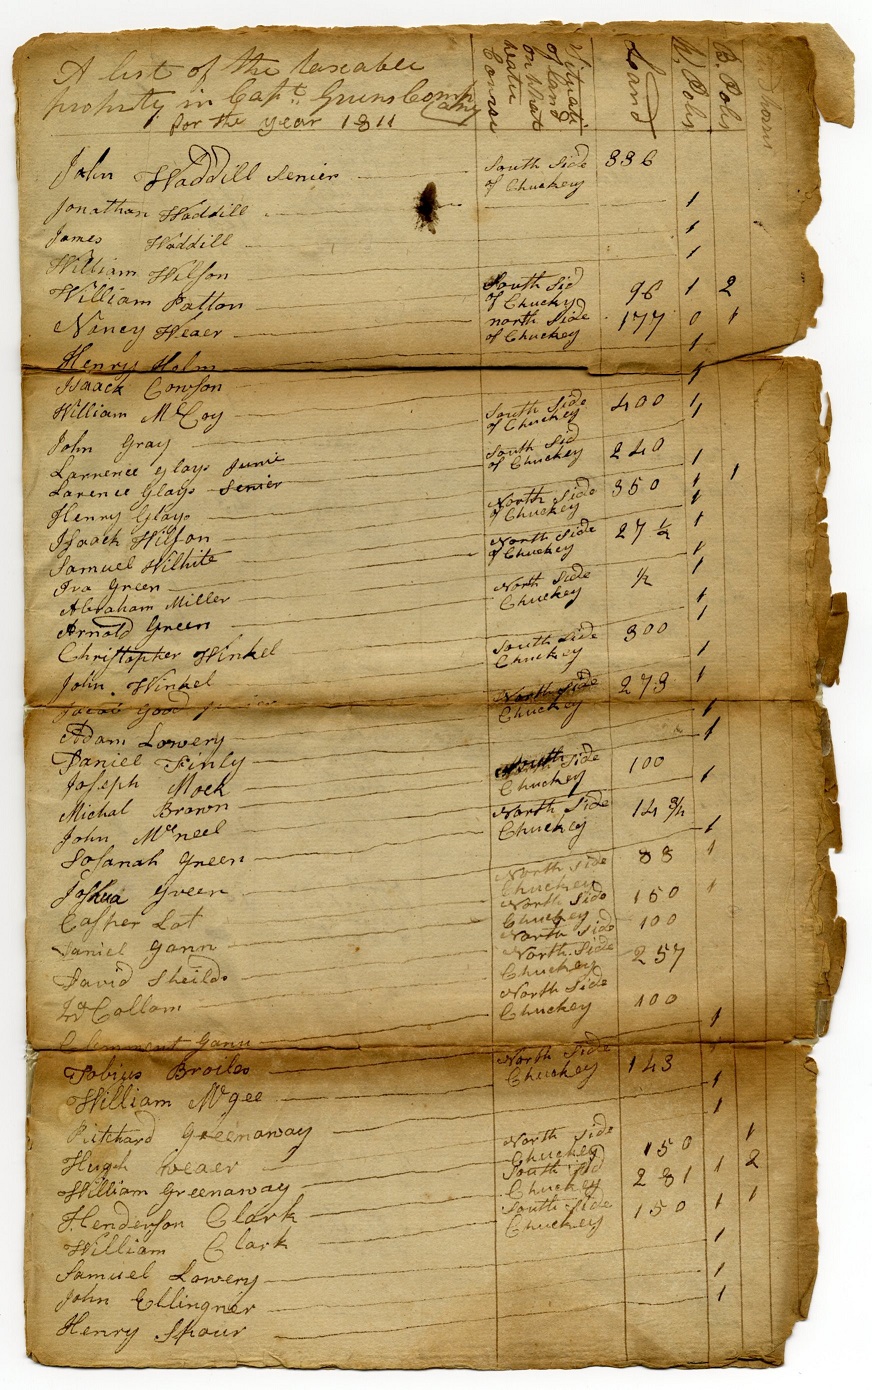 A list of the taxeable
property in Capt. Greens Company
for the year 1811
Situati
of land
on What
Water
Course
Land
W. Pols
B. Pols
John Waddill Senier South Side of Chuckey 336
Jonathan Waddill 1
James Waddill 1
William Wilson 1
William Patton South Sid of Chucky 96 1 2
Nancy Weaer north Side of Chuckey 177 0 1
Henry Holm 1
Isaack Cowson 1
William McCoy South Side of Chuckey 400 1
John Gray 1
Larrence Glays Junie South Sid of Chuckey 240
Larence Glays Senier 1
Henry Glays North Side of Chuckey 350 1 1
Isaack Wilson 1
Samuel Wilhite North Side of Chuckey 27 1/2 1
Ira Green 1
Abraham Miller North Side Chuckey 1/2 1
Arnold Green 1
Christopher Winkel 1
John Winkel South Side Chuckey 300 1
Good North Side Chuckey 273 1
Adam Lowery 1
Daniel Finly 1
Joseph Mock North Side Chuckey 100
Michal Brown 1
John McNeel North Side Chuckey 14 3/4
Sosanah Green 1
Joshua Green North Side Chuckey 88 1
Casper Lot North Side Chuckey 150 1
Daniel Gann North Side 100
David Sheilds North Side Chuckey 257
McCollam North Side Chuckey 100
Clemment Gann 1
Tobius Broiles North Side Chuckey 143
William Mcgee 1
Pritchard Greenaway 1
Hugh Weaer North Side Chuckey 150 1
William Greenaway South Sid Chuckey 281 1 2
Henderson Clark South Side Chuckey 150 1 1
William Clark 1
Samuel Lowery 1
John Ellingner 1
Henry Shour